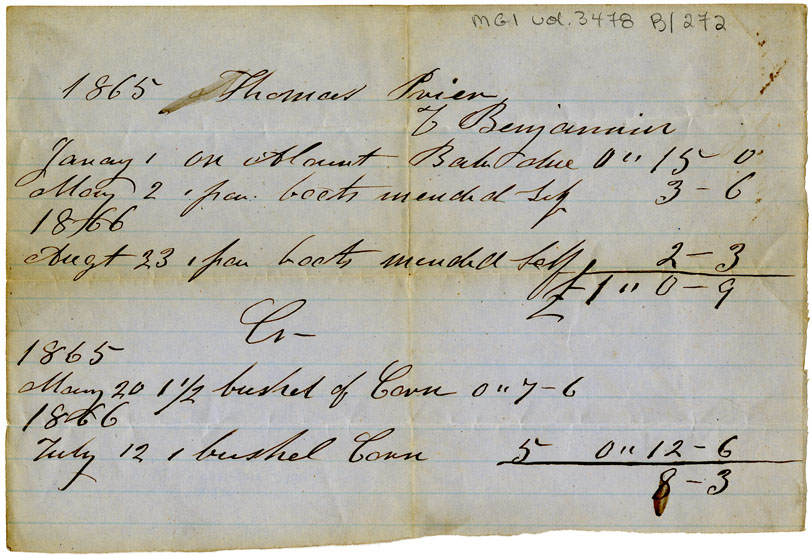 MG1 vol. 3478 B/272
1865 Thomas Prier
To Benjamin
Janay 1 on Acount Bale due 0 " 15 0
May 2 1 par boots mended Self 3 - 6
1866
Augt 23 1 par boots mended Self 2 - 3
£ 1 " 0 - 9
Cr -
1865
May 20 1 1/2 bushel of Corn 0 " 7 - 6
1866
July 12 1 bushel Corn 5 0 " 12 - 6
8 - 3